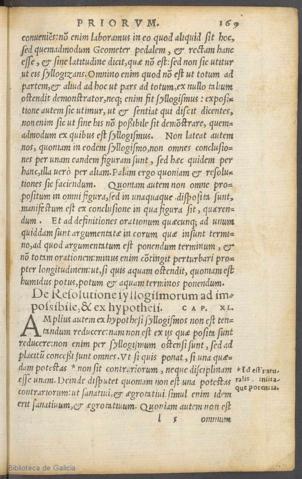 PRIORVM. 169
conuenies: nõ enim laboramus in eo quod aliquid sit hoc,
sed quemadmodum Geometer pedalem, & rectam hanc
esse, & sine latitudine dicit, quæ nõ est: sed non sic vtitur
vt eis syllogizans. Omnino enim quod nõ est vt totum ad
partem, & aliud ad hoc vt pars ad totum, ex nullo talium
ostendit demonstrator, neq; enim fit syllogismus: exposi-
tione autem sic vtimur, vt & sentiat qui discit dicentes,
non enim sic vt sine his nõ possibile sit demõstrare, quem-
admodum ex quibus est syllogismus. Non lateat autem
nos, quoniam in eodem syllogismo, non omnes conclusio-
nes per vnam eandem figuram sunt, sed hæc quidem per
hanc, illa verò per aliam. Palàm ergo quoniam & resolu-
tiones sic faciendum. Quoniam autem non omne pro-
positum in omni figura, sed in vnaquaque disposita sunt,
manifestum est ex conclusione in qua figura sit, quæren-
dum. Et ad definitiones orationum quæcunq; ad vnum
quiddam sunt argumentatæ in eorum quæ insunt termi-
no, ad quod argumentatum est ponendum terminum, &
nõ totam orationem: minus enim cõtingit perturbari pro-
pter longitudinem: vt, si quis aquam ostendit, quoniam est
humidus potus, potum & aquam terminos ponendum.
De Resolutione syllogismorum ad im-
possibile, & ex hypothesi. CAP. XL.
AMplius autem ex hypothesi syllogismos non est ten-
tandum reducere: nam non est ex ijs quæ posita sunt
reducere: non enim per syllogismum ostensi sunt, sed ad
placitũ concessi sunt omnes. Vt si quis ponat, si vna quæ-
dam potestas * non sit contrariorum, neque disciplinam
esse vnam. Deinde disputet quoniam non est vna potestas
contrariorum: vt sanatiui, & ægrotatiui simul enim idem
erit sanatiuum, & ægrotatiuum. Quoniam autem non est
* Id est natu-
ralis,
que potentia.
l 5 omnium
Biblioteca de Galicia